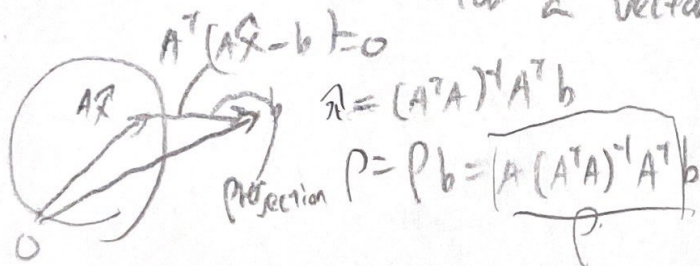 for a vector
Aᵀ(Ax̂ - b) = 0
Ax̂
b
x̂ = (AᵀA)⁻¹Aᵀb
projection p = Pb = A(AᵀA)⁻¹Aᵀb
O
P